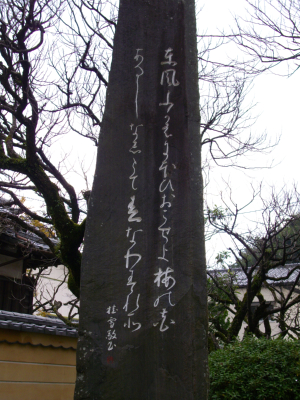 東風ふかはにほひおこせよ梅の花
あるしなしとて春なわすれそ